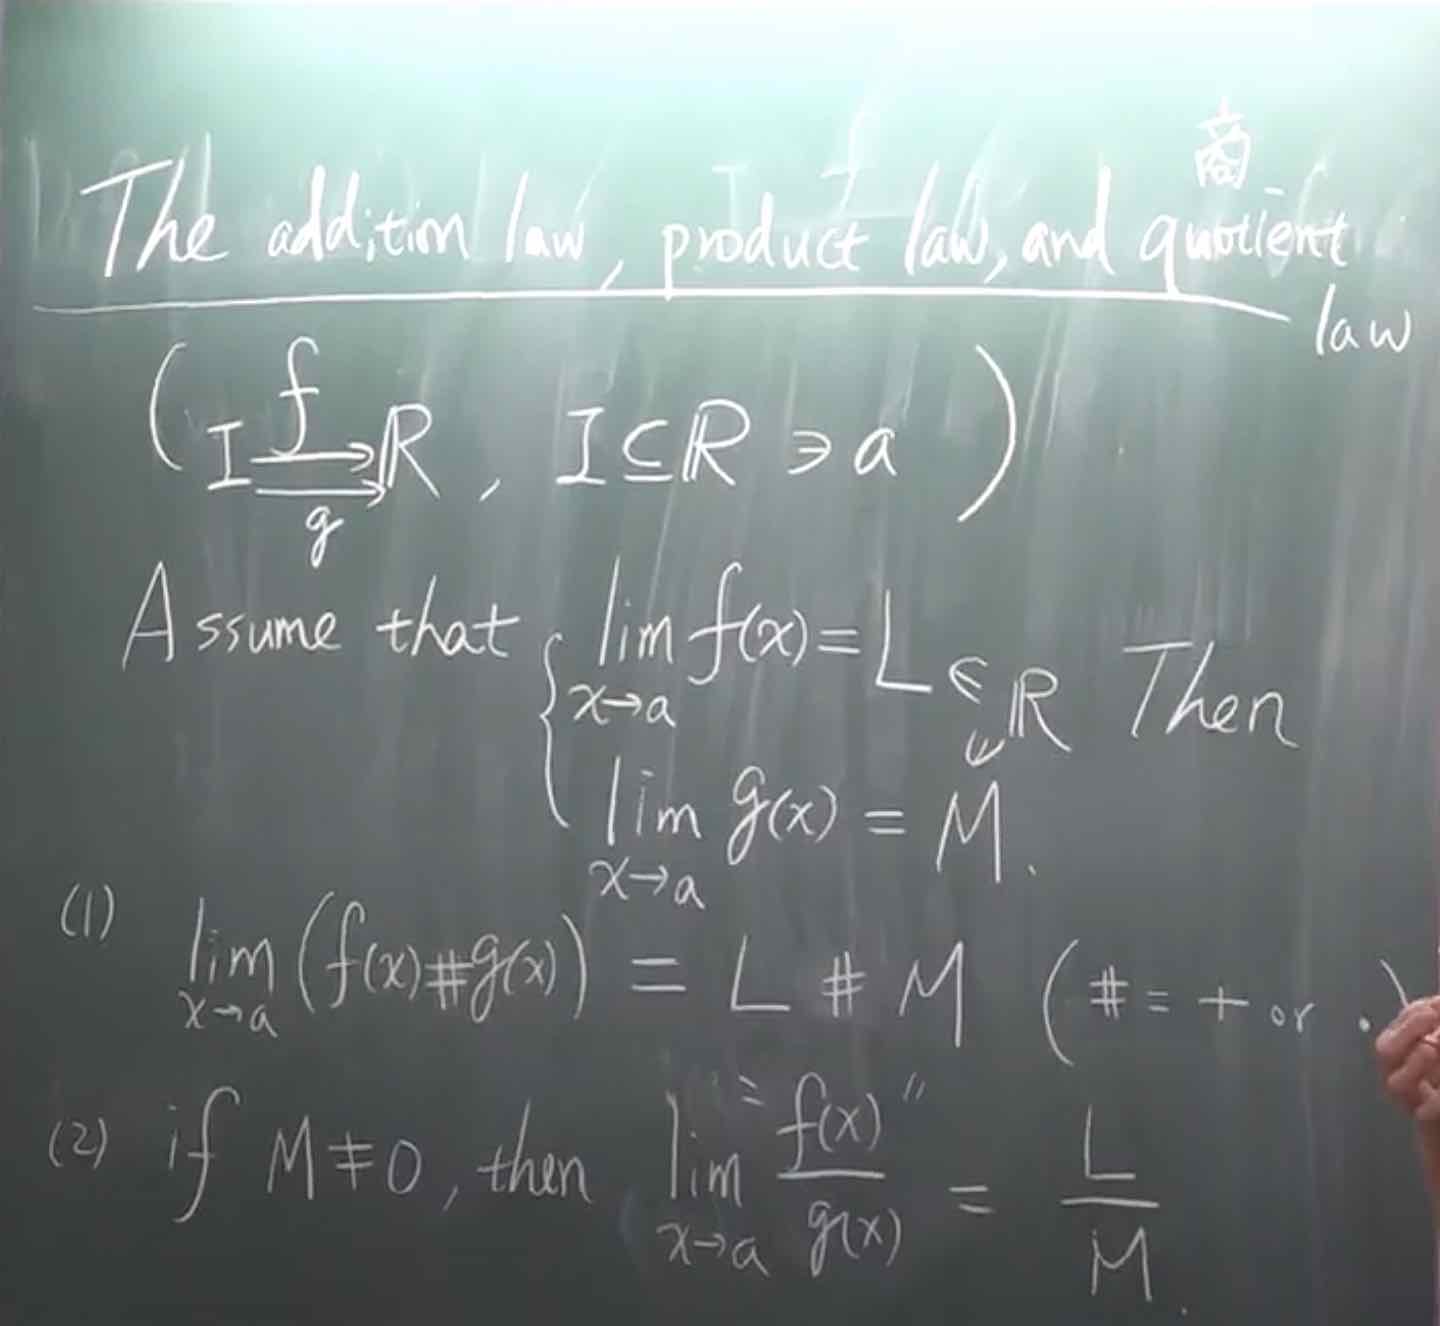 商
The addition law, product law, and quotient
law
( I f→ g→ ℝ , I ⊆ ℝ ∋ a )
Assume that { lim x→a f(x) = L ∈ ℝ Then
lim x→a g(x) = M .
(1) lim x→a (f(x) # g(x)) = L # M ( # = + or · )
(2) if M ≠ 0 , then lim x→a " f(x) / g(x) " = L / M .